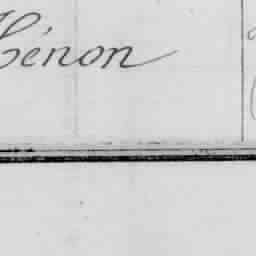 Hénon